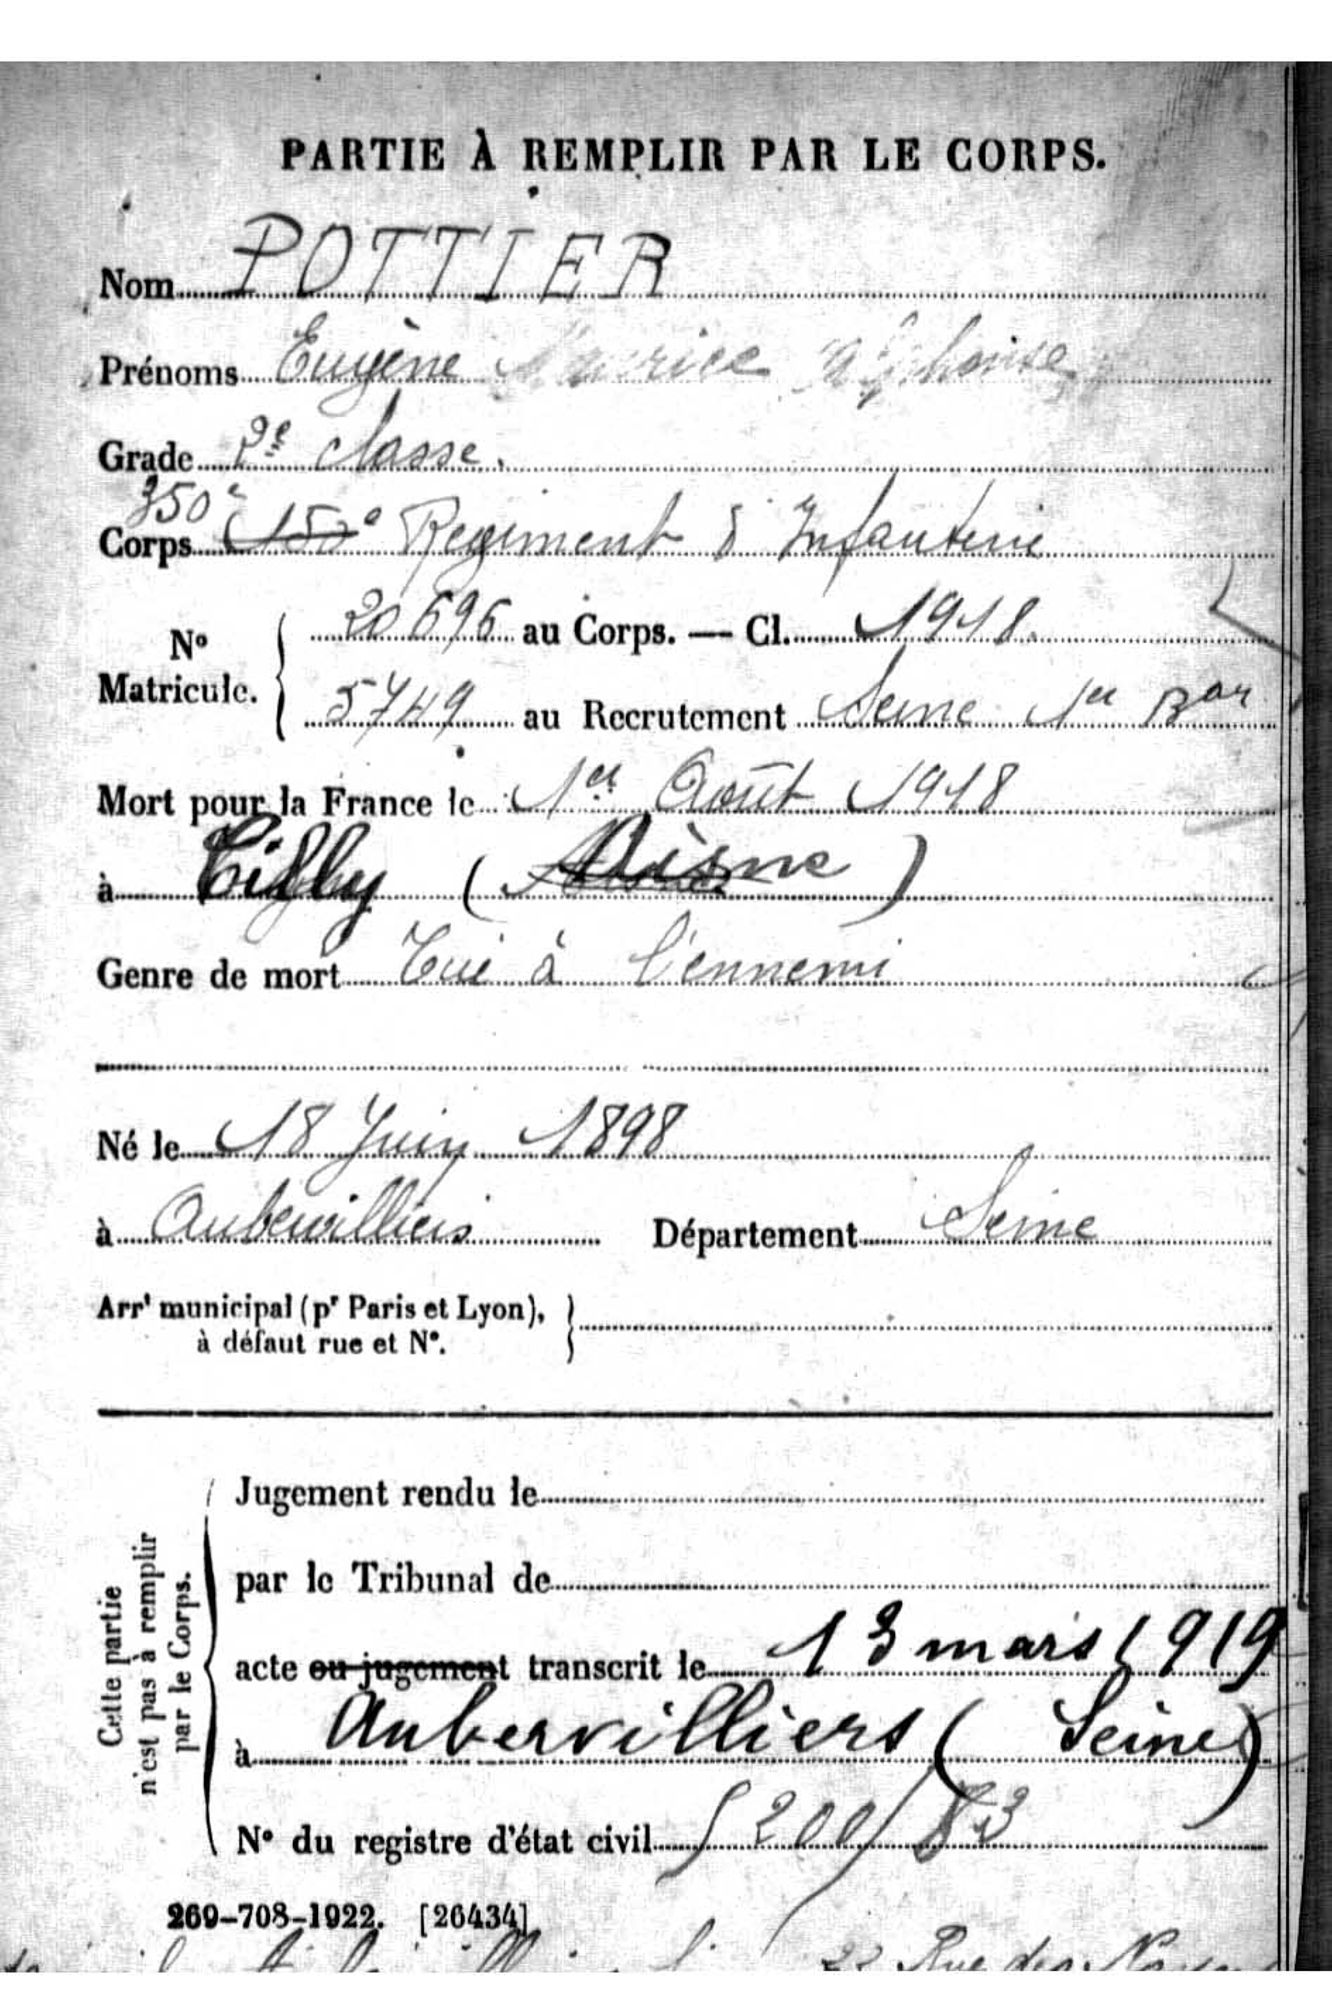 PARTIE À REMPLIR PAR LE CORPS.
Nom POTTIER
Prénoms Eugène Maurice Alphonse
Grade 2e classe.
350e
Corps 150e Régiment d'Infanterie
No Matricule. 20696 au Corps. — Cl. 1918.
5749 au Recrutement Seine 1er Bau
Mort pour la France le 1er Août 1918
à (Aisne)
Genre de mort Tué à l'ennemi
Né le 18 Juin 1898
à Aubervilliers Département Seine
Arrt municipal (pr Paris et Lyon),
à défaut rue et No.
Cette partie
n'est pas à remplir
par le Corps.
Jugement rendu le
par le Tribunal de
acte ou jugement transcrit le 13 mars 1919
à Aubervilliers (Seine)
No du registre d'état civil 200/83
269-708-1922. [26434]
Rue des